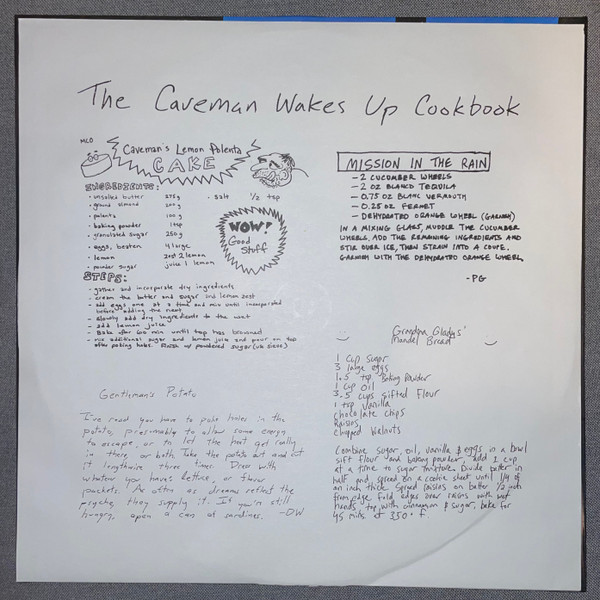 The Caveman Wakes Up Cookbook
MCD
Caveman's Lemon Polenta
CAKE
INGREDIENTS:
· unsalted butter 275g
· ground almond 200g
· polenta 100g
· baking powder 1 tsp
· granulated sugar 250g
· eggs, beaten 4 large
· lemon zest 2 lemon
· powder sugar juice 1 lemon
· salt 1/2 tsp
WOW!
Good
Stuff
STEPS:
- gather and incorporate dry ingredients
- cream the butter and sugar and lemon zest
- add eggs one at a time and mix until incorporated
before adding the next
- slowly add dry ingredients to the wet
- add lemon juice
- Bake after 60 min until top has browned
- mix additional sugar and lemon juice and pour on top
after poking holes. Finish w/ powdered sugar
MISSION IN THE RAIN
- 2 CUCUMBER WHEELS
- 2 OZ BLANCO TEQUILA
- 0.75 OZ BLANC VERMOUTH
- 0.25 OZ FERNET
- DEHYDRATED ORANGE WHEEL (GARNISH)
IN A MIXING GLASS, MUDDLE THE CUCUMBER
WHEELS, ADD THE REMAINING INGREDIENTS AND
STIR OVER ICE, THEN STRAIN INTO A COUPE.
GARNISH WITH THE DEHYDRATED ORANGE WHEEL.
-PG
Gentleman's Potato
I've read you have to poke holes in the
potato, presumably to allow some energy
to escape, or to let the heat get really
in there, or both. Take the potato out and cut
it lengthwise three times. Dress with
whatever you have: lettuce, or flavor
packets. As often as dreams reflect the
psyche, they supply it. If you're still
hungry, open a can of sardines. -DW
Grandma Gladys'
Mandel Bread
1 cup sugar
3 large eggs
1.5 tsp Baking Powder
1 cup oil
3.5 cups sifted flour
1 tsp vanilla
chocolate chips
Raisins
chopped walnuts
Combine sugar, oil, vanilla & eggs in a bowl
sift flour and baking powder, add 1 cup
at a time to sugar mixture. Divide batter in
half and spread on a cookie sheet until 1/4 of
an inch thick. Spread raisins on batter 1/2 inch
from edge. Fold edges over raisins with wet
hands, top with cinnamon & sugar, bake for
45 mins at 350° F.